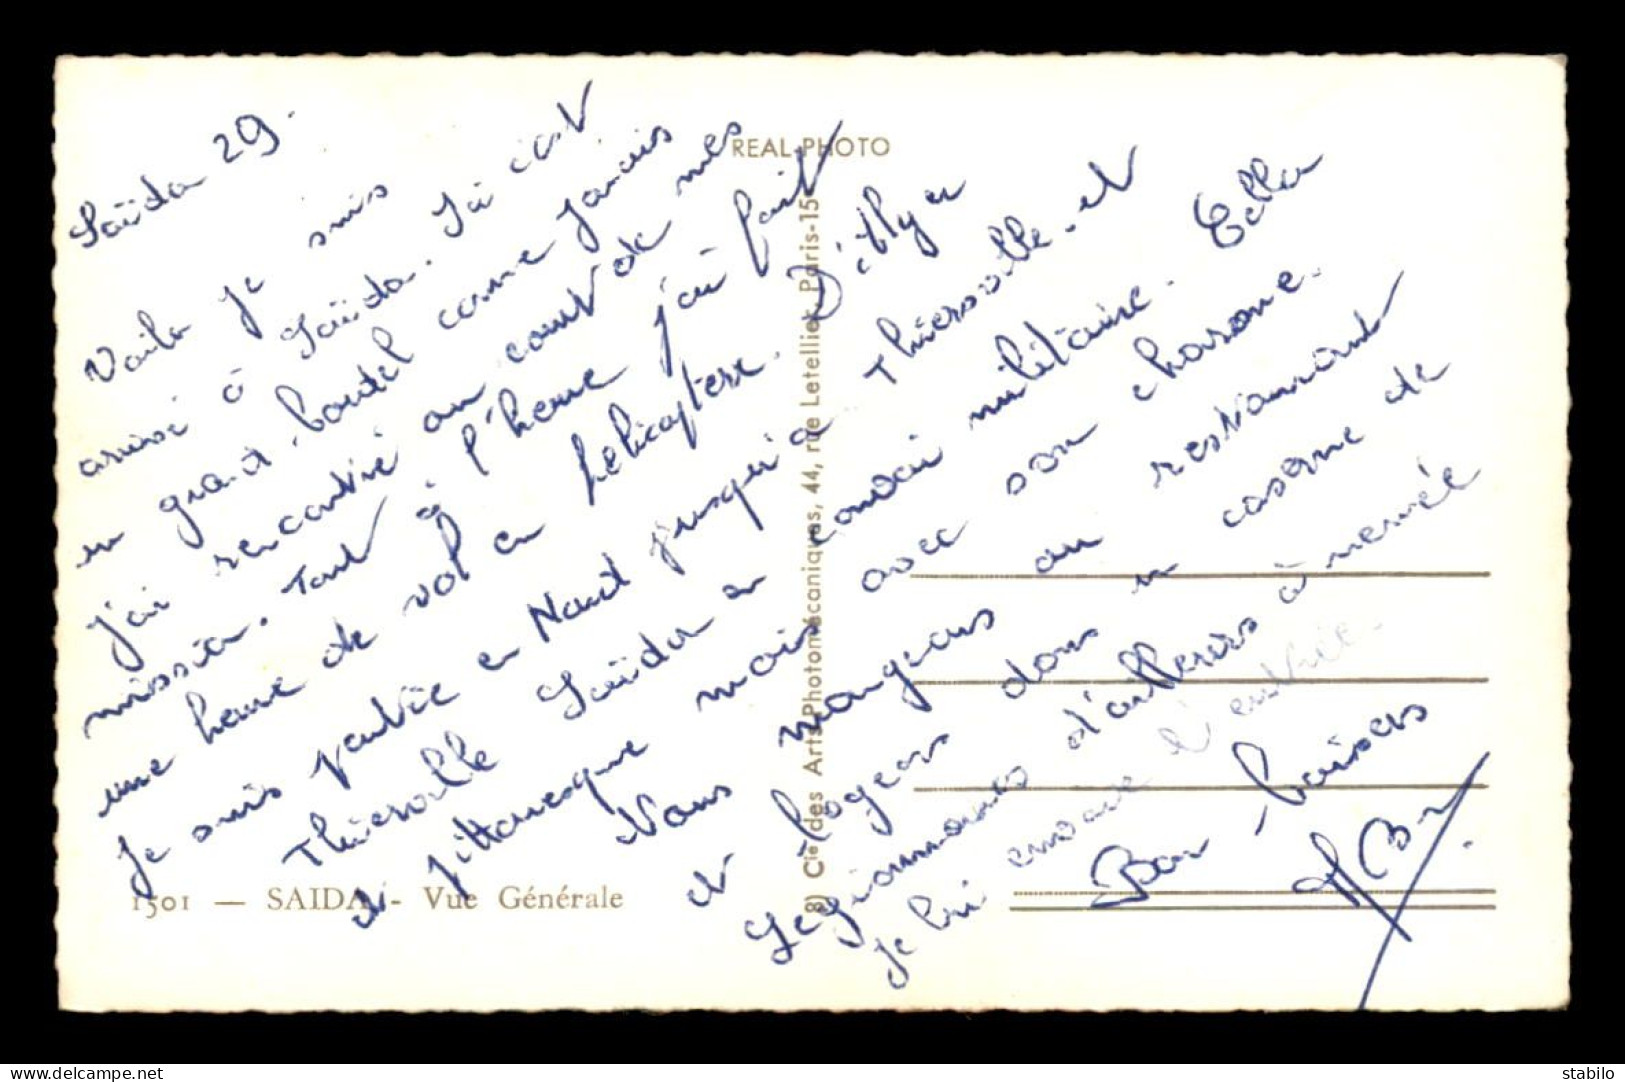 Saïda 29.
Voila je suis
arrivé à Saïda. Ici c'est
un grand bordel comme jamais
j'ai rencontré au court de mes
mission. Tout à l'heure j'ai fait
une heure de vol en hélicoptère. D'
Je suis partie en Nord jusqu'à Thiersville et
Thiersville Saïda en convoi militaire. Ella
et pittoresque mais avec son charme.
Nous mangeons au restaurant
et logeons dans un caserne de
Legionnaires d'ailleurs à
je lui l'entrée.
Bon baisers
REAL PHOTO
8) Cie des Arts Photomécaniques, 44, rue Letellier, Paris-15e
1501 — SAIDA - Vue Générale
delcampe.net
stabilo